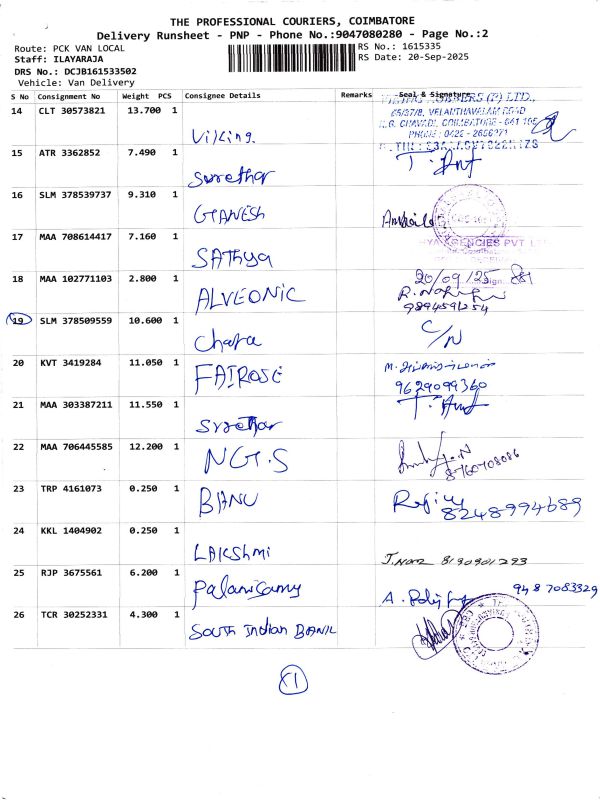 THE PROFESSIONAL COURIERS, COIMBATORE
Delivery Runsheet - PNP - Phone No.:9047080280 - Page No.:2
Route: PCK VAN LOCAL
RS No.: 1615335
Staff: ILAYARAJA
RS Date: 20-Sep-2025
DRS No.: DCJB161533502
Vehicle: Van Delivery
S No Consignment No Weight PCS Consignee Details Remarks Seal & Signature
14 CLT 30573821 13.700 1 Viking.
65/37/8, VELANTHAVALAM ROAD
K.G. CHAVADI, COIMBATORE - 641 105
PHONE : 0422 - 2656971
15 ATR 3362852 7.490 1 Surethar
16 SLM 378539737 9.310 1 GANESH
17 MAA 708614417 7.160 1 SAThya
AGENCIES PVT LTD
18 MAA 102771103 2.800 1 ALVEONIC 20/09/25
9894591254
19 SLM 378509559 10.600 1 Chara C/N
20 KVT 3419284 11.050 1 FAIROSE
9629099360
21 MAA 303387211 11.550 1 Surethar
22 MAA 706445585 12.200 1 NG.S
8760708086
23 TRP 4161073 0.250 1 BANU
8248994689
24 KKL 1404902 0.250 1 LAKShmi
8190901293
25 RJP 3675561 6.200 1 Palanisamy
9487083329
26 TCR 30252331 4.300 1 South Indian BANK